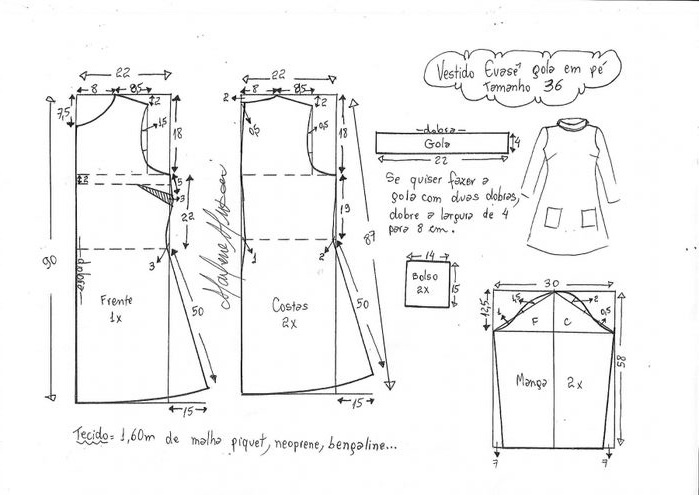 Vestido Evasê gola em pé
Tamanho 36
22
8
8,5
7,5
2
1,5
18
2
5
3
22
90
dobra
3
Frente
1x
50
15
22
8
8,5
2
2
0,5
0,5
18
19
87
1
2
Costas
2x
50
15
Marlene Mukai
dobra
Gola
4
22
Se quiser fazer a
gola com duas dobras,
dobre a largura de 4
para 8 cm.
14
Bolso
2x
15
30
12,5
1
1,5
2
0,5
F
C
58
Manga 2x
7
7
Tecido = 1,60m de malha piquet, neoprene, bengaline...